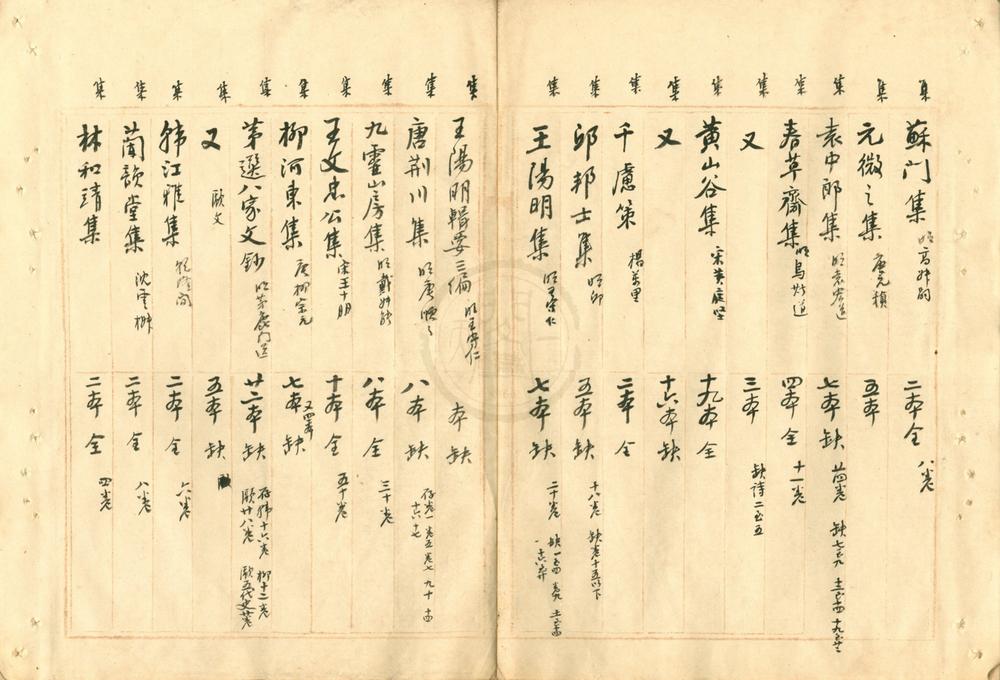 集 蘇门集 明高叔嗣 二本 全 八卷
集 元微之集 唐元稹 五本
集 袁中郎集 明袁宏道 七本 缺 廿四卷 缺七至九
集 春草齋集 明烏斯道 四本 全 十一卷
集 又 三本 缺詩二至五
集 黄山谷集 宋黄庭堅 十九本 全
集 又 十六本 缺
集 千慮策 楊萬里 二本 全
集 邱邦士集 明邱 五本 缺 十八卷 缺卷十五以下
集 王陽明集 明王守仁 七本 缺 二十卷
集 王陽明輯要三編 明王守仁 本 缺
集 唐荆川集 明唐順之 八本 缺
集 九靈山房集 明戴叔能 八本 全 三十卷
集 王文忠公集 宋王十朋 十本 全 五十卷
集 柳河東集 唐柳宗元 七本 又四本 缺
集 茅選八家文鈔 明茅鹿门選 廿二本 缺 存韩十六卷 柳十二卷 歐廿八卷 歐五代史廿卷
集 又 歐文 五本 缺
集 韩江雅集 二本 全 六卷
集 蘭韻堂集 沈雲椒 二本 全 八卷
集 林和靖集 二本 全 四卷